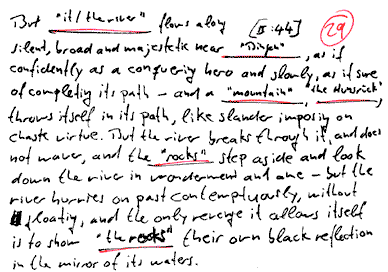 But "it/the river" flows along [II:44] 29
silent, broad and majestetic near "Bingen", as if
confidently as a conquering hero and slowly, as if sure
of completing its path – and a "mountain", "the Hunsrück",
throws itself in its path, like slander imposing on
chaste virtue. But the river breaks through it, and does
not waver, and the "rocks" step aside and look
down the river in wonderment and awe – but the
river hurries on past contemptuously, without
gloating, and the only revenge it allows itself
is to show "the rocks" their own black reflection
in the mirror of its waters.